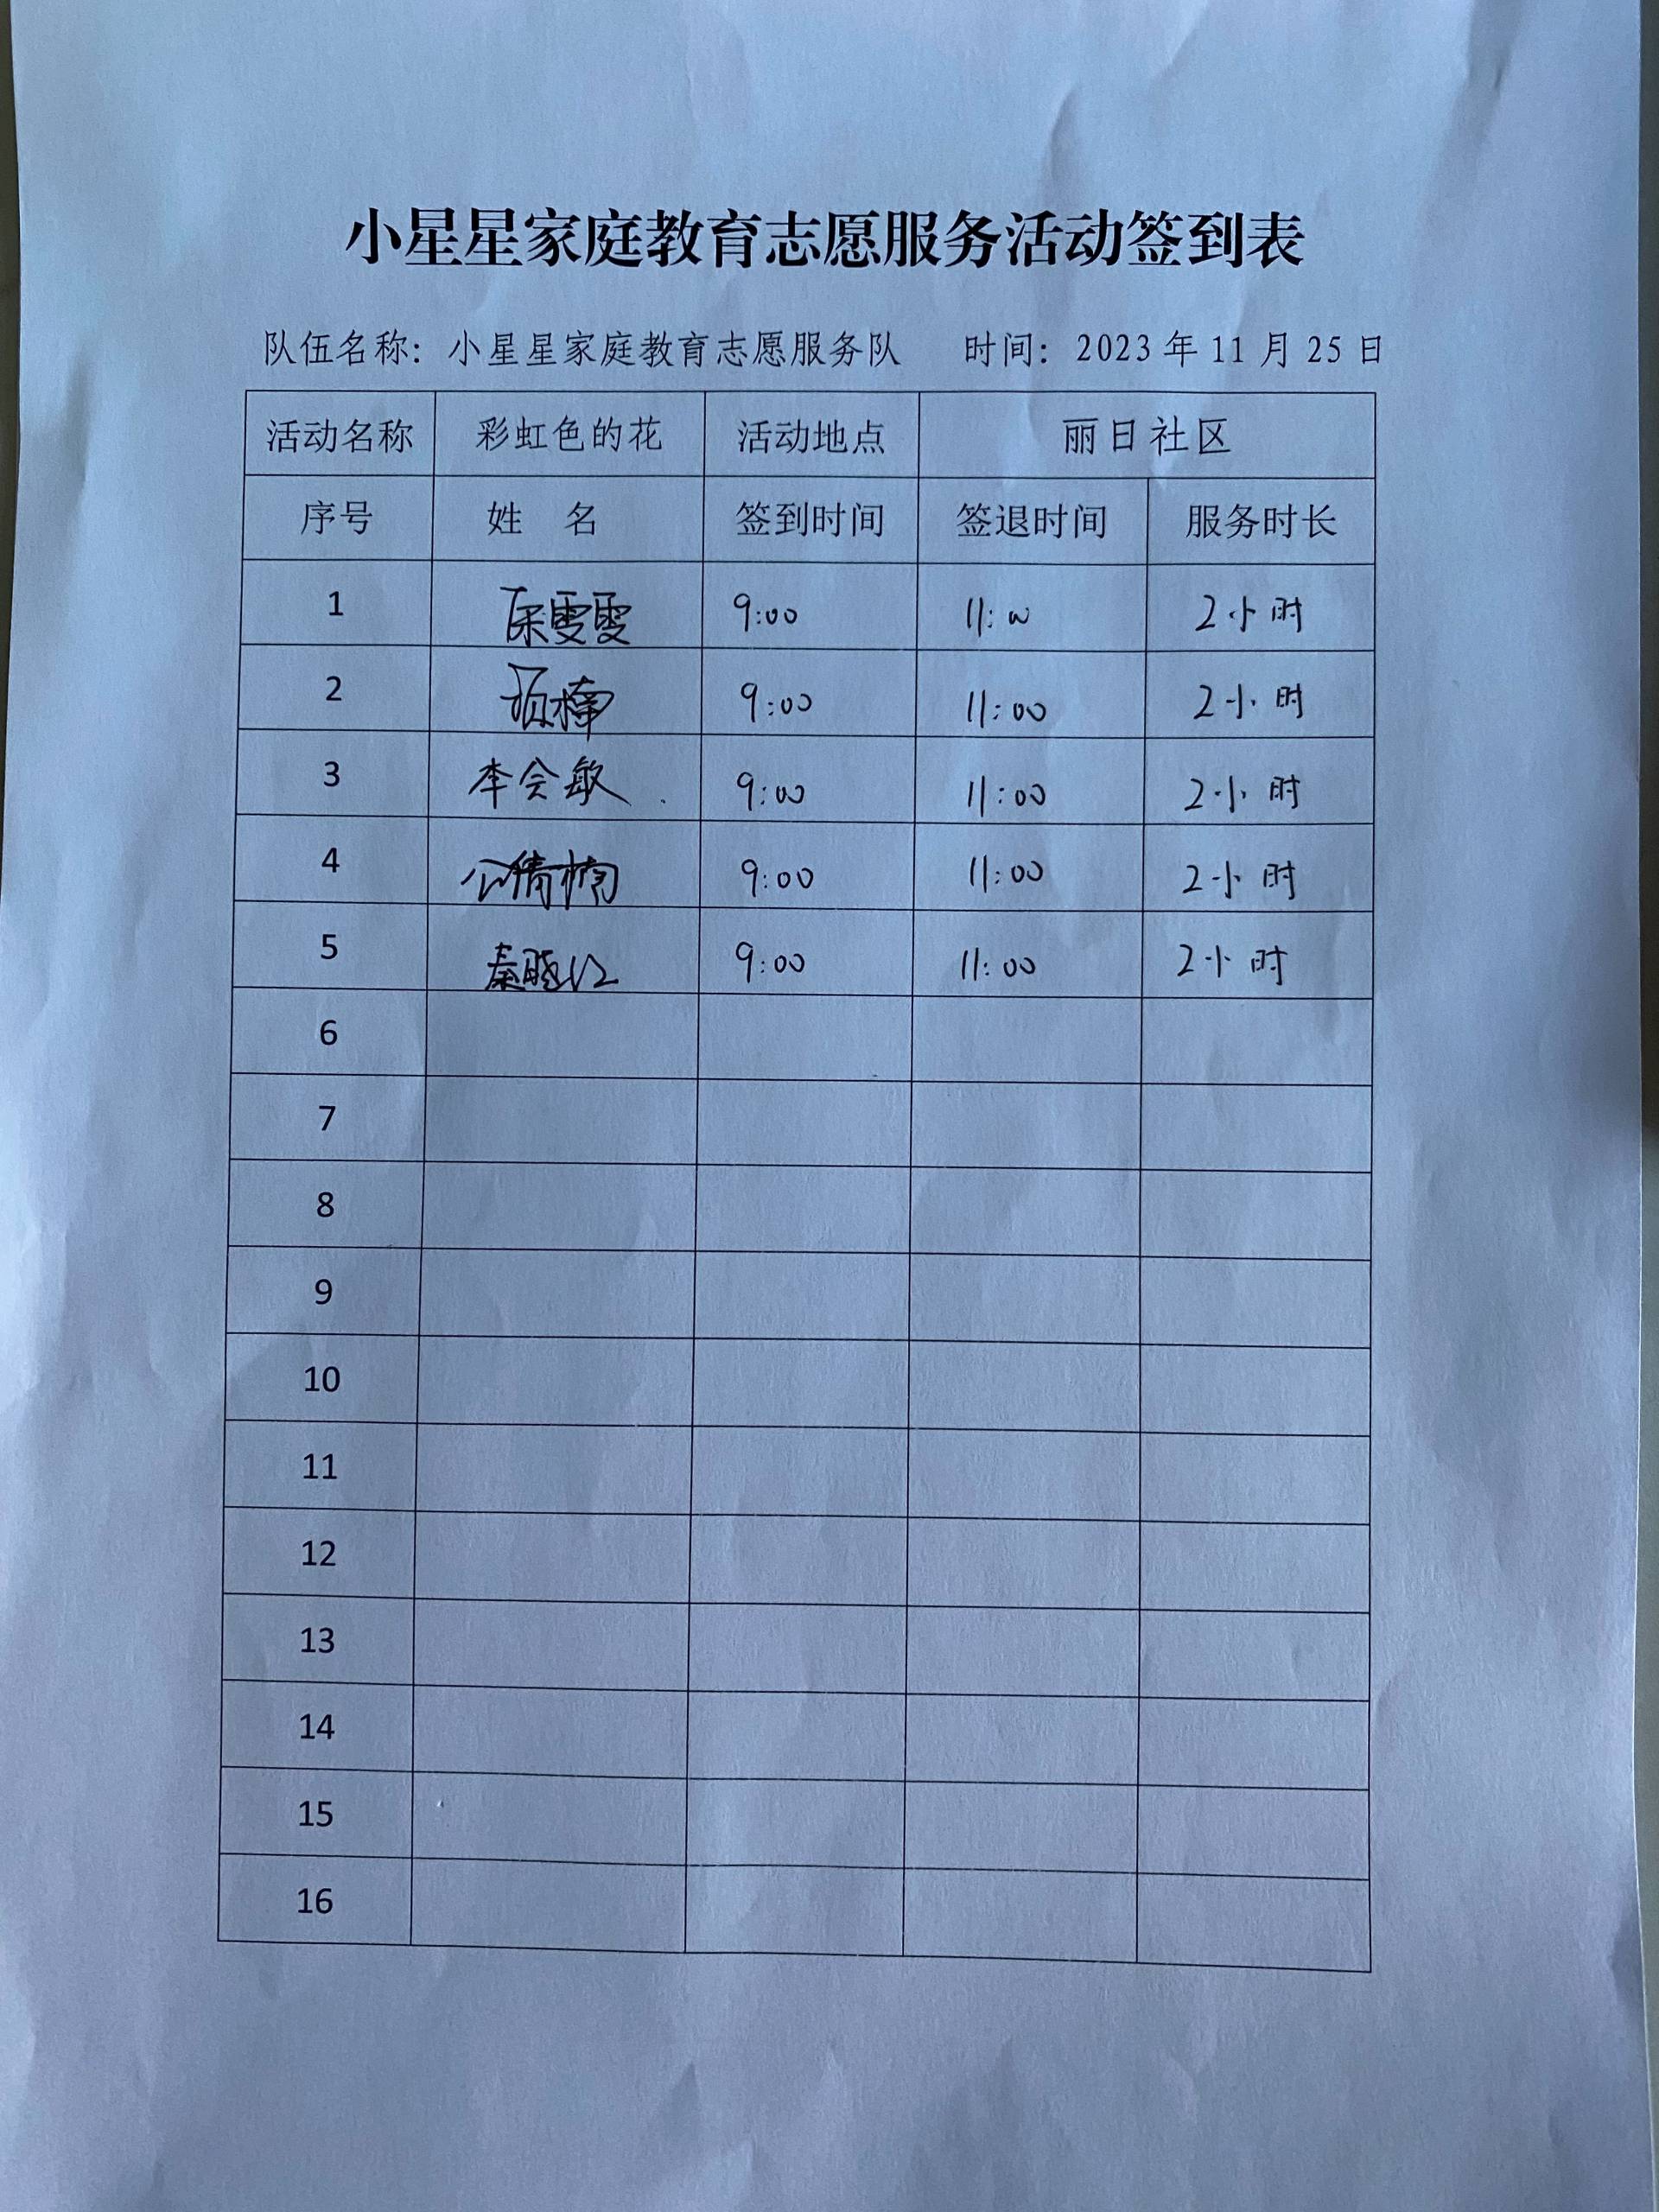 小星星家庭教育志愿服务活动签到表
队伍名称：小星星家庭教育志愿服务队 时间：2023年11月25日
活动名称 彩虹色的花 活动地点 丽日社区
序号 姓 名 签到时间 签退时间 服务时长
1 雯雯 9:00 11:00 2小时
2 楠 9:00 11:00 2小时
3 李会敏 9:00 11:00 2小时
4 公倩楠 9:00 11:00 2小时
5 秦晓红 9:00 11:00 2小时
6
7
8
9
10
11
12
13
14
15
16